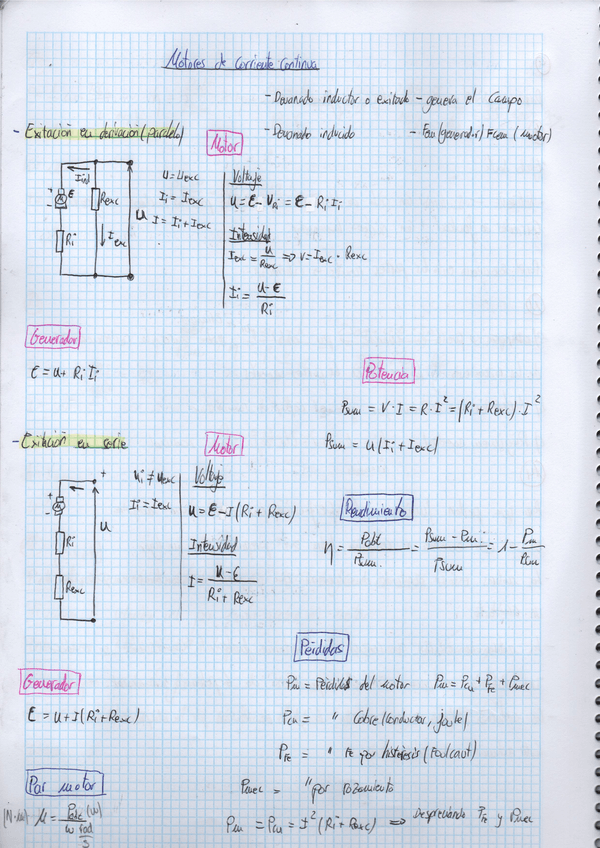 Motores de Corriente Continua
- Devanado inductor o exitado - genera el Campo
- Exitación en derivación (paralelo)
- Devanado inducido - Fem (generador) Fcem (motor)
Motor
Iind
+
-
ε
Rexc
Ri
Iexc
U
U = Uexc
Ii = Iexc
I = Ii + Iexc
Voltaje
U = ε - VRi = ε - Ri Ii
Intensidad
Iexc = U / Rexc => V = Iexc · Rexc
Ii = U - ε / Ri
Generador
ε = U + Ri Ii
Potencia
Psum = V · I = R · I² = (Ri + Rexc) · I²
Psum = U (Ii + Iexc)
- Exitación en serie
Motor
+
+
-
U
Ri
Rexc
Ui ≠ Uexc
Ii = Iexc
Voltaje
U = ε - I (Ri + Rexc)
Intensidad
I = U - ε / Ri + Rexc
Rendimiento
η = Pabt / Psum = Psum - Pm / Psum = 1 - Pm / Psum
Pérdidas
Pm = Pérdidas del motor Pm = Pcu + PFe + Pmec
Pcu = " Cobre (conductor, joule)
PFE = " FE por histérisis (Foulcaut)
Pmec = " por rozamiento
Pm = Pcu = I² (Ri + Rexc) => Despreciando PFe y Pmec
Generador
ε = U + I (Ri + Rexc)
Par motor
(N·m) (W)
ω rad/s